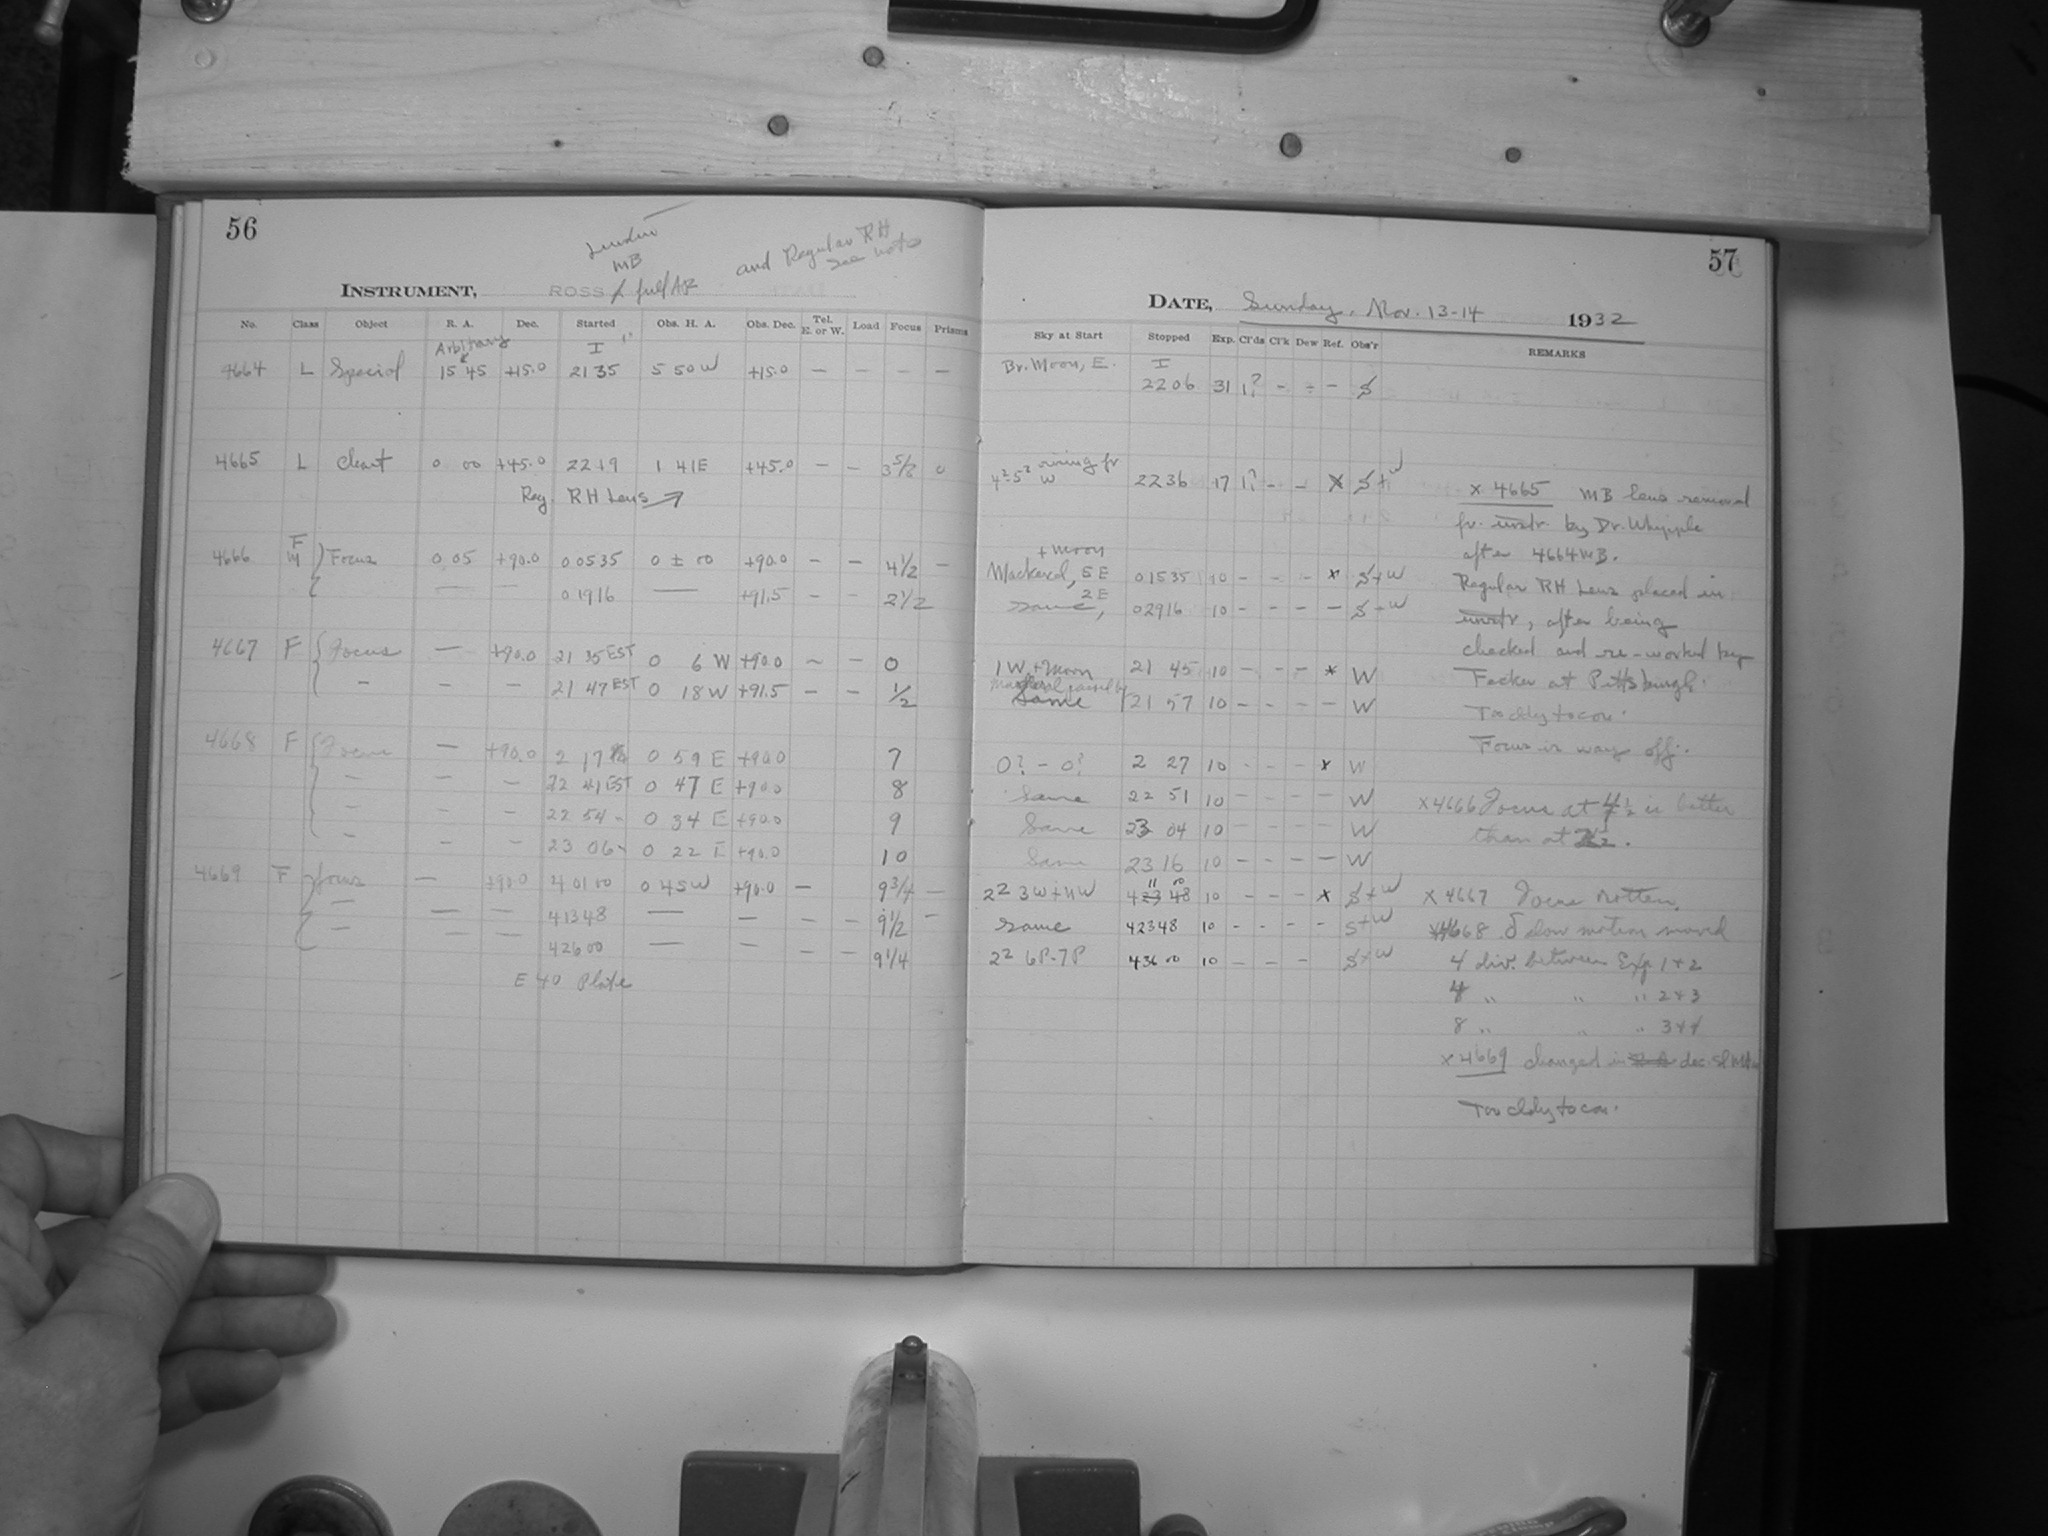 56
MB
and Regular RH
see note
INSTRUMENT, ROSS
No. Class Object R. A. Dec. Started Obs. H. A. Obs. Dec. Tel. E. or W. Load Focus Prisms
Arbitrary I
4664 L Special 15 45 +15.0 2135 5 50 W +15.0 — — — — —
4665 L Chart 0 00 +45.0 2219 1 41E +45.0 — — 3 5/8 0
Reg. RH Lens →
4666 F Focus 0 05 +90.0 00535 0 ± 00 +90.0 — — 4 1/2 —
— — 01916 — +91.5 — — 2 1/2
4667 F Focus — +90.0 21 35 EST 0 6 W +90.0 ~ — 0
— — — 21 47 EST 0 18 W +91.5 — — 1/2
4668 F Focus — +90.0 2 17 0 59 E +90.0 7
— — — 22 41 EST 0 47 E +90.0 8
— — 22 54 - 0 34 E +90.0 9
— — — 23 06 - 0 22 E +90.0 10
4669 F focus — +90.0 4 01 00 0 45W +90.0 — 9 3/4 —
— — — 41348 — — — — 9 1/2 —
— — — 42600 — — — — 9 1/4
E 40 Plate
57
DATE, Sunday, Nov. 13-14 1932
Sky at Start Stopped Exp. Cl'ds Cl'k Dew Ref. Obs'r REMARKS
Br. Moon, E. I
2206 31 1? - - - S
W 2236 17 1? - — X S+W
x 4665 MB lens removed
fr. instr. by Dr. Whipple
+ moon
after 4664MB.
Mackerel, 5E 01535 10 - - - x S+W
Regular RH Lens placed in
same, 2E 02916 10 - - - - S+W
instr, after being
checked and re-worked by
1 W + Moon 21 45 10 - - - * W
Fecker at Pittsburgh.
same 21 57 10 - - - - W
Too cldy to con.
Focus is way off.
0? - 0? 2 27 10 - - - x W
Same 22 51 10 - - - - W
x4666 Focus at 4 1/2 is better
Same 23 04 10 - - - - W
than at 2 1/2.
Same 23 16 10 - - - - W
2² 3W+NW 4 11 48 10 - - - x S+W
x 4667 Focus rotten.
same 42348 10 - - - - S+W
x4668 δ slow motion moved
2² 6P-7P 43600 10 - - - S+W
4 div. between Exp. 1+2
4 " " " 2+3
8 " " " 3+4
x 4669 changed in dec. sl
Too cldy to con.